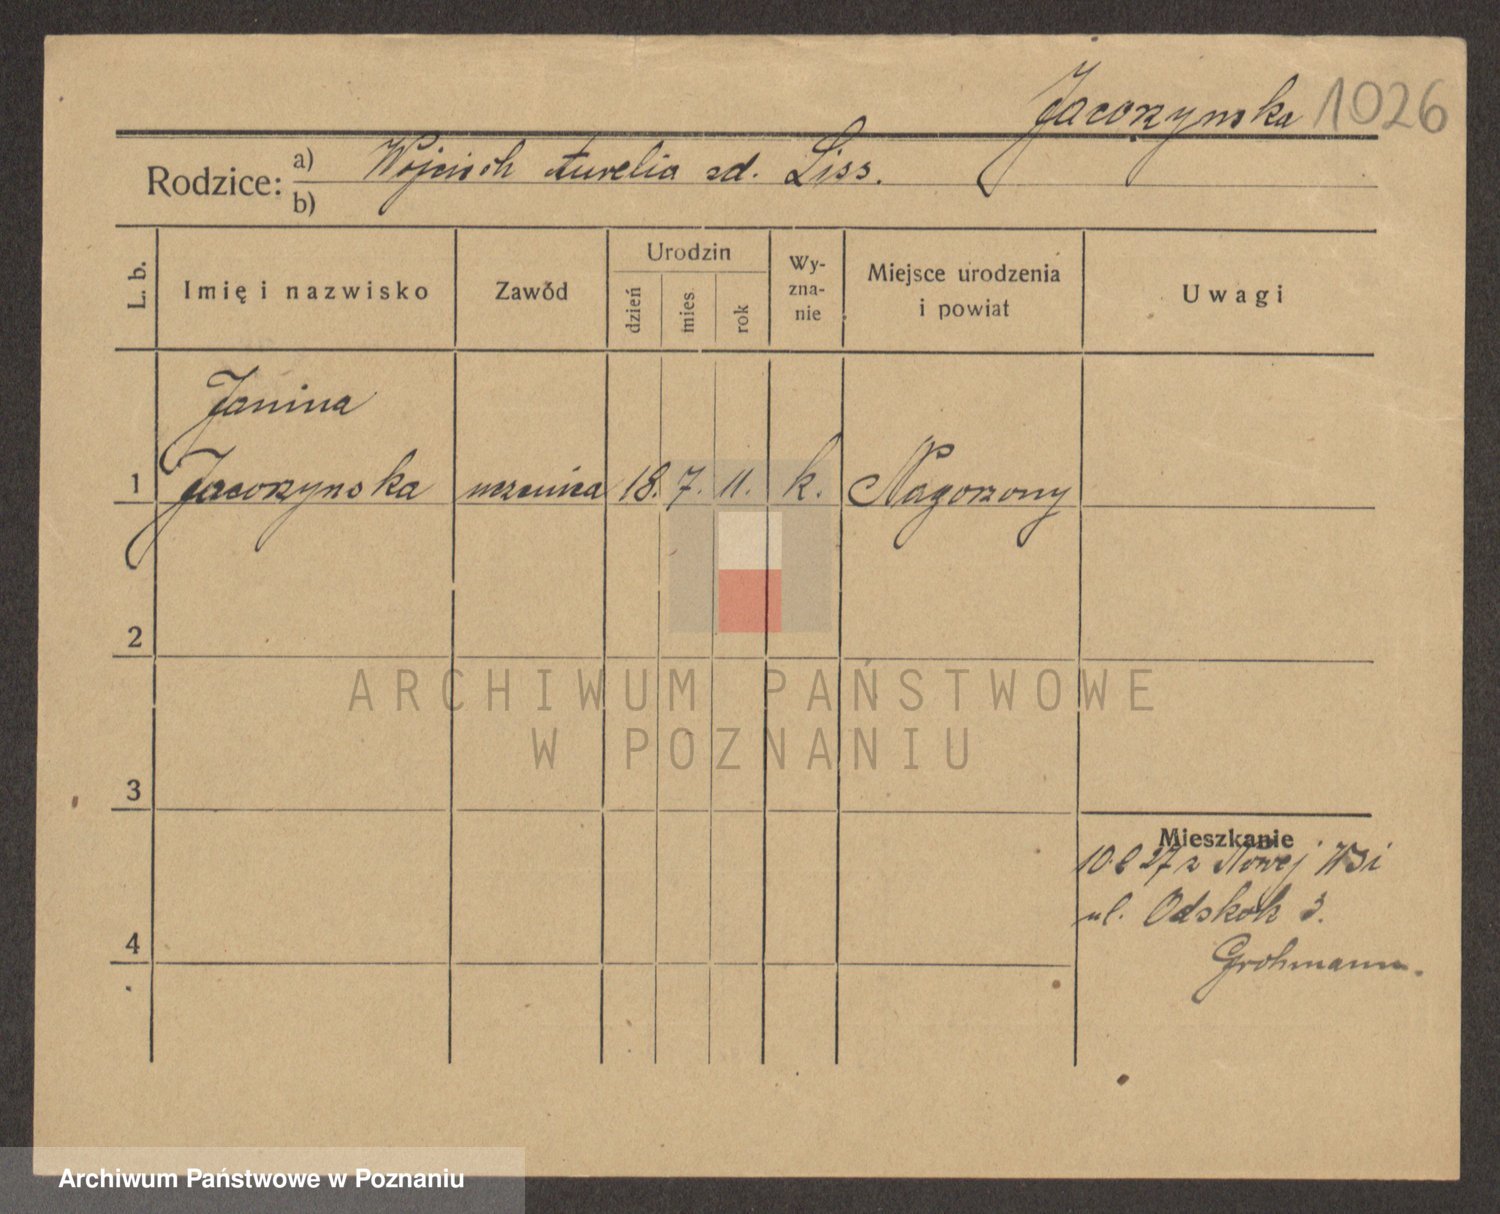 Jacorzynska 1026
Rodzice: a) Wojciech Aurelia zd. Liss.
b)
L. b.
Imię i nazwisko
Zawód
Urodzin
dzień
mies.
rok
Wy-
zna-
nie
Miejsce urodzenia
i powiat
Uwagi
Janina
1 Jacorzynska uczenica 18. 7. 11. k. Nagorzony
2
ARCHIWUM PAŃSTWOWE
W POZNANIU
3
Mieszkanie
10 27 z Nowej Wsi
4 ul. Odskok 3.
Grohmann.
Archiwum Państwowe w Poznaniu